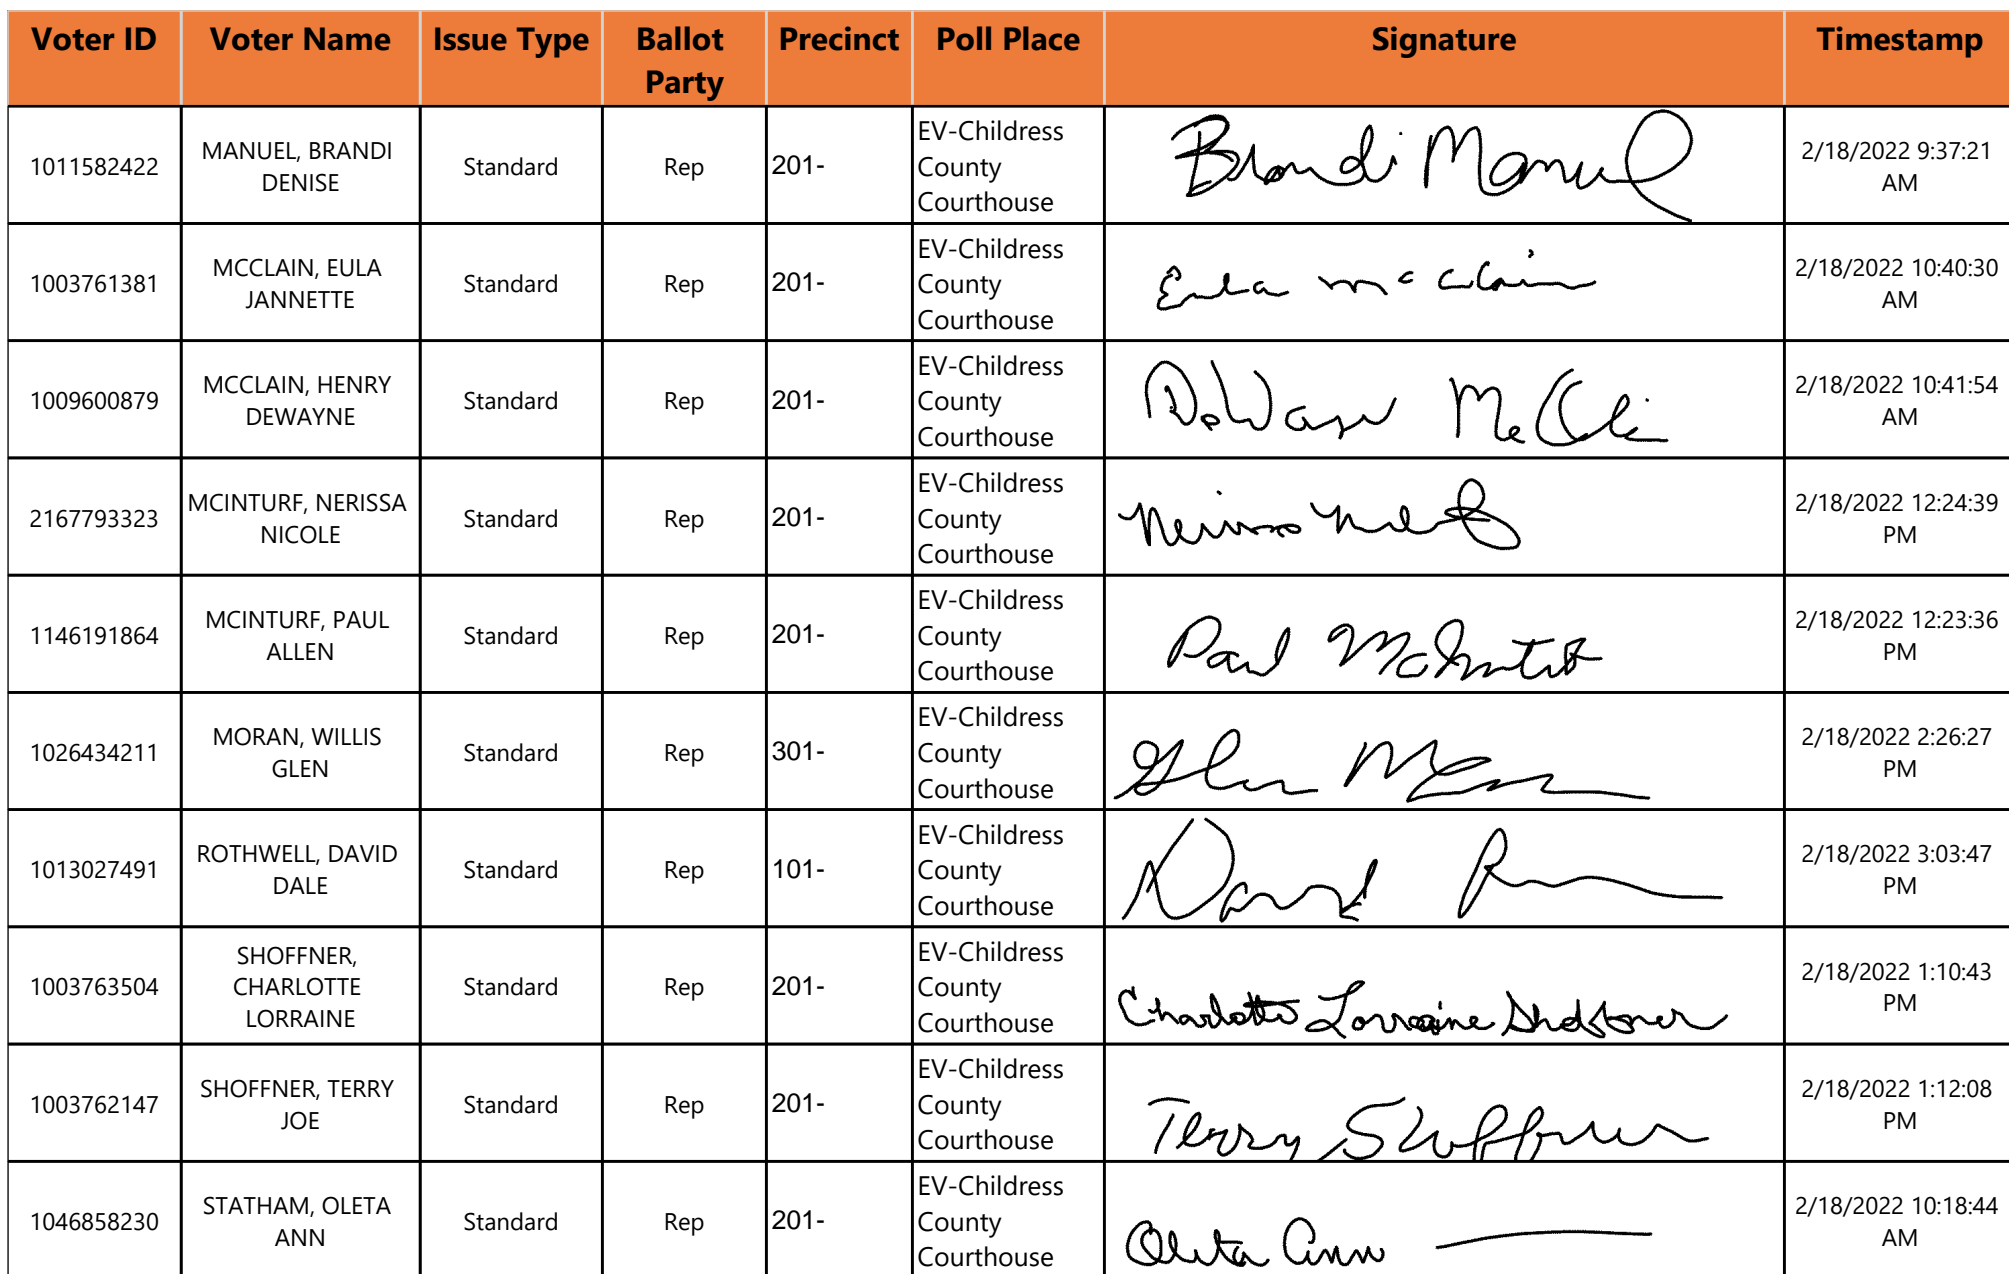 Voter ID Voter Name Issue Type Ballot Party Precinct Poll Place Signature Timestamp
1011582422 MANUEL, BRANDI DENISE Standard Rep 201- EV-Childress County Courthouse Brandi Manuel 2/18/2022 9:37:21 AM
1003761381 MCCLAIN, EULA JANNETTE Standard Rep 201- EV-Childress County Courthouse Eula McClain 2/18/2022 10:40:30 AM
1009600879 MCCLAIN, HENRY DEWAYNE Standard Rep 201- EV-Childress County Courthouse DeWayne McClain 2/18/2022 10:41:54 AM
2167793323 MCINTURF, NERISSA NICOLE Standard Rep 201- EV-Childress County Courthouse Nerissa 2/18/2022 12:24:39 PM
1146191864 MCINTURF, PAUL ALLEN Standard Rep 201- EV-Childress County Courthouse Paul McInturf 2/18/2022 12:23:36 PM
1026434211 MORAN, WILLIS GLEN Standard Rep 301- EV-Childress County Courthouse Glen 2/18/2022 2:26:27 PM
1013027491 ROTHWELL, DAVID DALE Standard Rep 101- EV-Childress County Courthouse David 2/18/2022 3:03:47 PM
1003763504 SHOFFNER, CHARLOTTE LORRAINE Standard Rep 201- EV-Childress County Courthouse Charlotte Lorraine Shoffner 2/18/2022 1:10:43 PM
1003762147 SHOFFNER, TERRY JOE Standard Rep 201- EV-Childress County Courthouse Terry Shoffner 2/18/2022 1:12:08 PM
1046858230 STATHAM, OLETA ANN Standard Rep 201- EV-Childress County Courthouse Oleta Ann 2/18/2022 10:18:44 AM